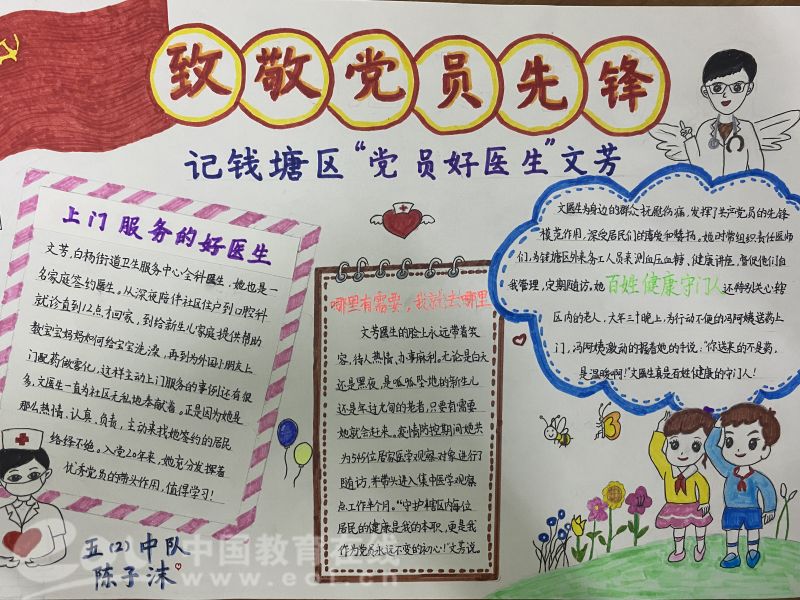 致敬党员先锋
记钱塘区“党员好医生”文芳
上门服务的好医生
文芳,白杨街道卫生服务中心全科医生,她也是一
名家庭签约医生。从深夜陪伴社区住户到口腔科
就诊直到12点才回家,到给新生儿家庭提供帮助
教宝宝妈妈如何给宝宝洗澡,再到为外国小朋友上
门配药做雾化,这样主动上门服务的事例还有很
多,文医生一直为社区无私地奉献着。正是因为她是
那么热情、认真、负责,主动来找她签约的居民
络绎不绝。入党20年来,她充分发挥着
优秀党员的带头作用,值得学习!
五(2)中队
陈子沫
哪里有需要,我就去哪里
文芳医生的脸上永远带着笑
容,待人热情、办事麻利。无论是白天
还是黑夜,是呱呱坠地的新生儿
还是年过九旬的老者,只要有需要
她就会赶来。疫情防控期间她共
为545位居家医学观察对象进行了
随访,并带头进入集中医学观察
点工作半个月。“守护辖区内每位
居民的健康是我的本职,更是我
作为党员永远不变的初心!”文芳说。
文医生为身边的群众抚慰伤痛,发挥了共产党员的先锋
模范作用,深受居民们的喜爱和赞扬。她时常组织责任医师
们,为钱塘区外来务工人员来测血压血糖、健康讲座,督促他们自
我管理,定期随访。她百姓健康守门人还特别关心辖
区内的老人,大年三十晚上,为行动不便的冯阿姨送药上
门,冯阿姨激动的握着她的手说:“你送来的不是药,
是温暖啊!”文医生真是百姓健康的守门人!
中国教育在线
www.eol.cn